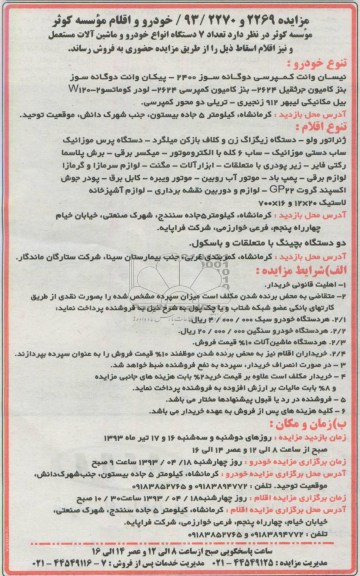 مزایده ۲۲۶۹ و ۲۲۷۰ /۹۳/ خودرو و اقلام مؤسسه کوثر
مؤسسه کوثر در نظر دارد تعداد ۷ دستگاه انواع خودرو و ماشین آلات مستعمل
و نیز اقلام اسقاط ذیل را از طریق مزایده حضوری به فروش رساند.
تنوع خودرو :
نیسان وانت کمپرسی دوگانه سوز ۲۴۰۰ - پیکان وانت دوگانه سوز
بنز کامیون جرثقیل ۲۶۲۴- بنز کامیون کمپرسی ۲۶۲۴- لودر کوماتسو W۱۲۰-۲
بیل مکانیکی لیبهر ۹۱۲ زنجیری - تریلی دو محور کمپرسی.
آدرس محل بازدید : کرمانشاه، کیلومتر ۵ جاده بیستون، جنب شهرک دانش، موقعیت توحید.
تنوع اقلام :
ژنراتور ولو - دستگاه زیگزاگ زن و کلاف بازکن میلگرد - دستگاه پرس موزائیک
ساب دستی موزائیک - ساب ۶ کله با الکتروموتور - میکسر برقی - برش پلاسما
رکتی فایر - زیر پودری با متعلقات - ابزارآلات - مگنت - لوازم سرمازا و گرمازا
لوازم برقی - پمپ باد - موتور آب روبین - موتور ویبره - کابل برق - پودر جوش
اکسپند گروت GP۲۲ - لوازم و دوربین نقشه برداری - لوازم آشپزخانه
لاستیک ۱۲×۲۰ و ۱۶×۷۰۰
آدرس محل بازدید : کرمانشاه، کیلومتر۵جاده سنندج، شهرک صنعتی، خیابان خیام
چهارراه پنجم، فرعی خوارزمی، شرکت فراپایه.
دو دستگاه بچینگ با متعلقات و باسکول.
آدرس محل بازدید : کرمانشاه، کمربندی غربی، جنب بیمارستان سینا، شرکت ستارگان ماندگار.
الف)شرایط مزایده :
۱- اهلیت قانونی خریدار.
۲- متقاضی به محض برنده شدن مکلف است میزان سپرده مشخص شده را بصورت نقدی از طریق
کارتهای بانکی عضو شبکه شتاب و یا چک پول به شرح ذیل به فروشنده پرداخت نماید:
۲/۱. هردستگاه خودرو سبک ۰۰۰ / ۰۰۰ / ۴ ریال.
۲/۲. هردستگاه خودرو سنگین ۰۰۰ / ۰۰۰ / ۲۰ ریال.
۲/۳. هردستگاه ماشین‌آلات ۱۰% قیمت فروش.
۲/۴. خریداران اقلام نیز به محض برنده شدن موظفند ۱۰% قیمت فروش را به عنوان سپرده بپردازند.
۳ - در صورت انصراف خریدار، سپرده به نفع فروشنده ضبط خواهد شد.
۴ - خریدار مکلف است علاوه بر قیمت خرید۲% بابت هزینه های جانبی مزایده
و ۸% بابت مالیات بر ارزش افزوده به فروشنده پرداخت نماید.
۵ - فروشنده در رد یا قبول پیشنهادها مختار می باشد.
۶ - کلیه هزینه های پس از فروش به عهده خریدار می باشد.
ب)زمان و مکان :
زمان بازدید مزایده : روزهای دوشنبه و سه‌شنبه ۱۶ و ۱۷ تیر ماه ۱۳۹۳
صبح از ساعت ۸ الی ۱۲ و عصر ۱۴ الی ۱۶
زمان برگزاری مزایده خودرو : روز چهارشنبه ۱۸/ ۰۴ / ۱۳۹۳ ساعت ۹ صبح
آدرس محل برگزاری مزایده خودرو : کرمانشاه، کیلومتر ۵ جاده بیستون، جنب‌شهرک‌دانش،
موقعیت توحید. تلفن : ۰۹۱۸۳۸۹۴۷۷۲ و ۰۹۱۸۳۸۵۲۷۶۵
زمان برگزاری مزایده اقلام : روز چهارشنبه۱۸/ ۰۴ / ۱۳۹۳ ساعت ۱۰/۳۰ صبح
آدرس محل برگزاری مزایده اقلام : کرمانشاه، کیلومتر ۵ جاده سنندج، شهرک صنعتی،
خیابان خیام، چهارراه پنجم، فرعی خوارزمی، شرکت فراپایه.
تلفن : ۰۹۱۸۳۸۹۴۷۷۲ و ۰۹۱۸۳۸۵۲۷۶۵
ساعت پاسخگویی صبح از ساعت ۸ الی ۱۲ و عصر ۱۴ الی ۱۶
مدیریت مزایده : ۴۴۵۴۹۱۲۵ - ۰۲۱ مدیریت خدمات پس از فروش : ۷ - ۴۴۵۴۹۱۱۶ - ۰۲۱